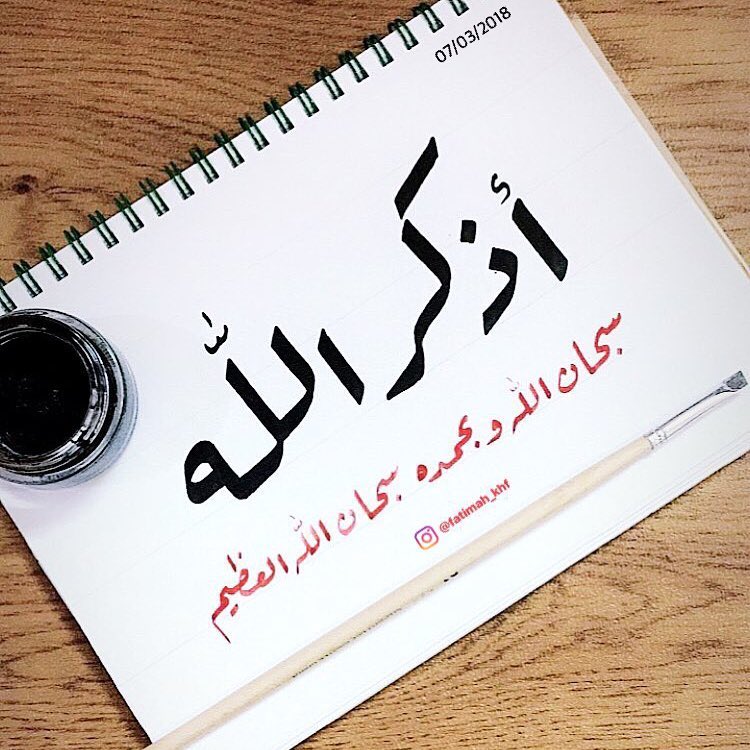 07/03/2018
أذكر الله
سبحان الله و بحمده سبحان الله العظيم
@fatimah_khf